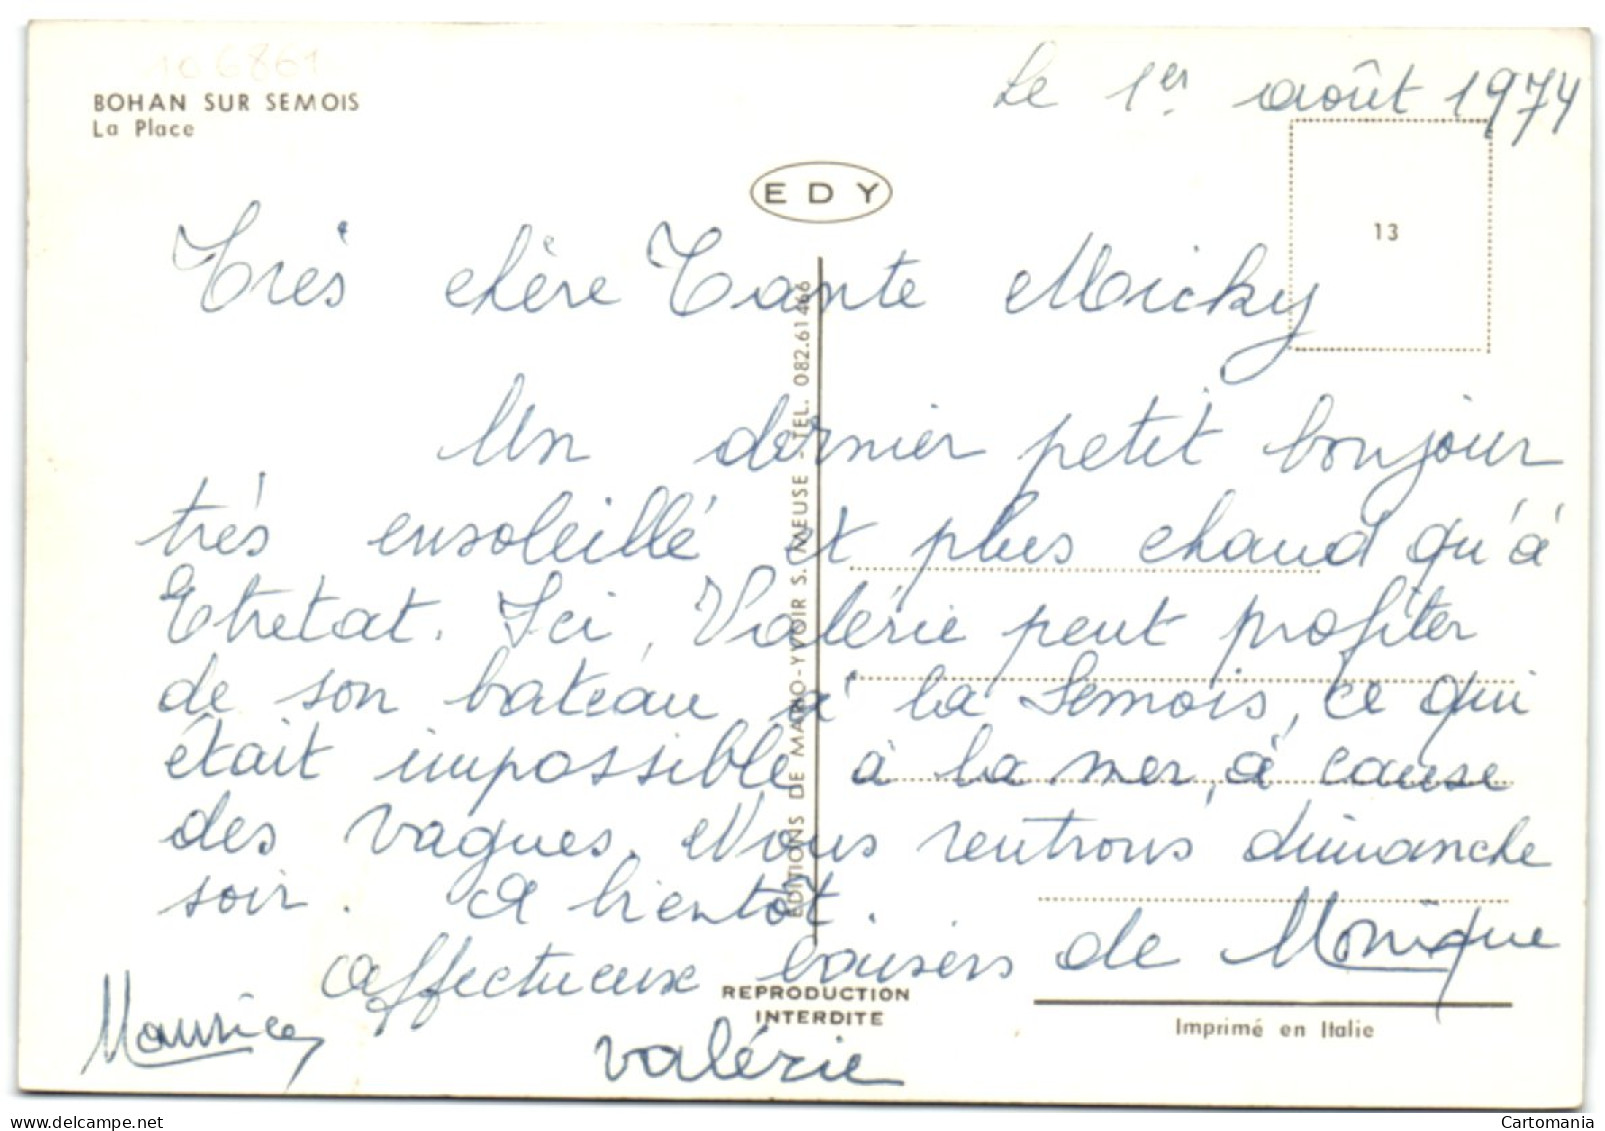 106861
BOHAN SUR SEMOIS
La Place
Le 1er août 1974
EDY
13
Très chère Tante Micky
Un dernier petit bonjour
très ensoleillé et plus chaud qu'à
Etretat. Ici, Valérie peut profiter
de son bateau à la Semois, ce qui
était impossible à la mer, à cause
des vagues. Nous rentrons dimanche
soir. A bientôt.
Affectueux baisers de Monique
Maurice
Valérie
EDITIONS DE MARKO-YVOIR S. MEUSE - TEL. 082.61466
REPRODUCTION
INTERDITE
Imprimé en Italie
Cartomania